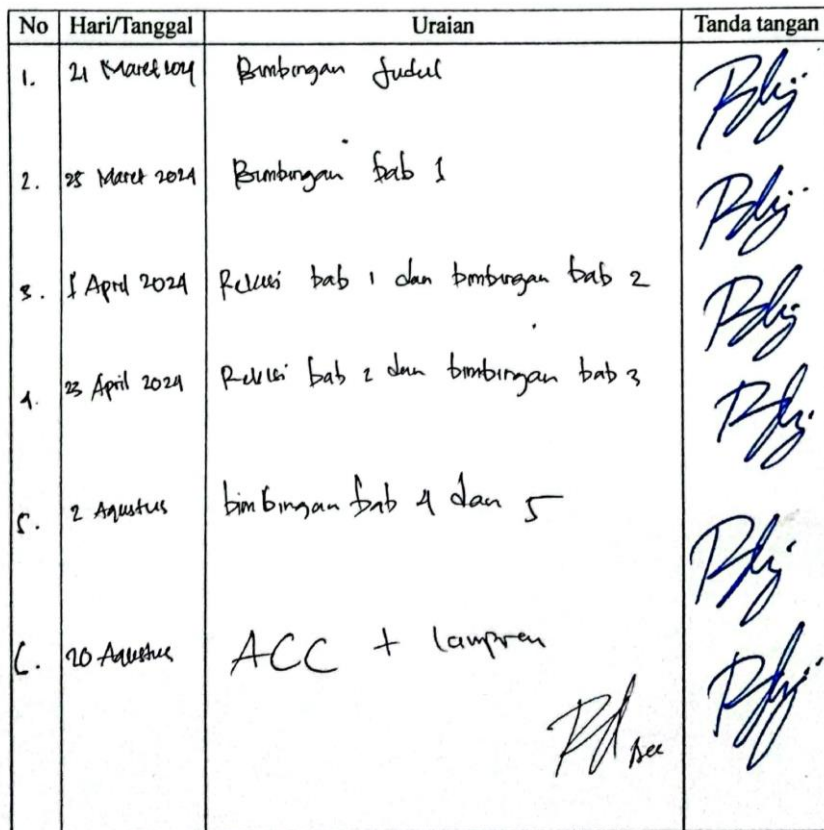 No Hari/Tanggal Uraian Tanda tangan
1. 21 Maret 2024 Bimbingan Judul
2. 25 Maret 2024 Bimbingan bab 1
3. 1 April 2024 Revisi bab 1 dan bimbingan bab 2
4. 23 April 2024 Revisi bab 2 dan bimbingan bab 3
5. 2 Agustus bimbingan bab 4 dan 5
6. 20 Agustus ACC + lampiran